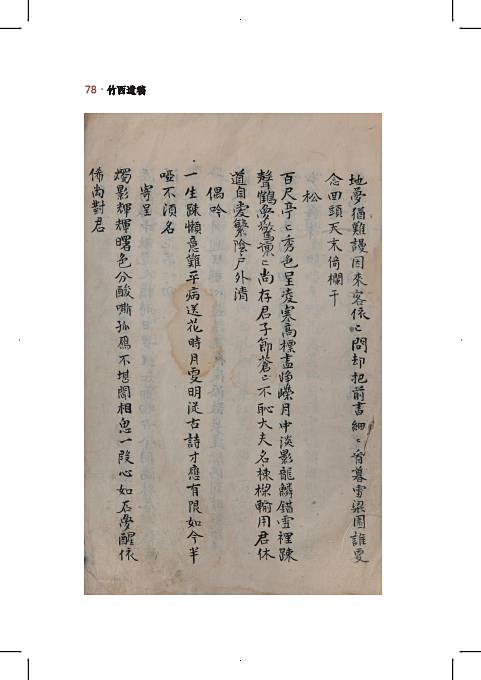 78 · 竹西遺稿
地夢猶難謾因來客依〻問却把前書細〻看暮雪梁園誰更
念回頭天末倚欄干
松
百尺亭〻秀色呈凌寒高標盡崢嶸月中淡影龍鱗錯雪裡踈
聲鶴夢驚凜〻尚存君子節蒼〻不恥大夫名棟樑輸用君休
道自愛繁陰戶外清
偶吟
一生踈懶意難平病送花時月更明從古詩才應有限如今半
啞不須名
寄呈
燭影輝輝曙色分酸嘶孤鴈不堪聞相思一段心如石夢醒依
俙尚對君